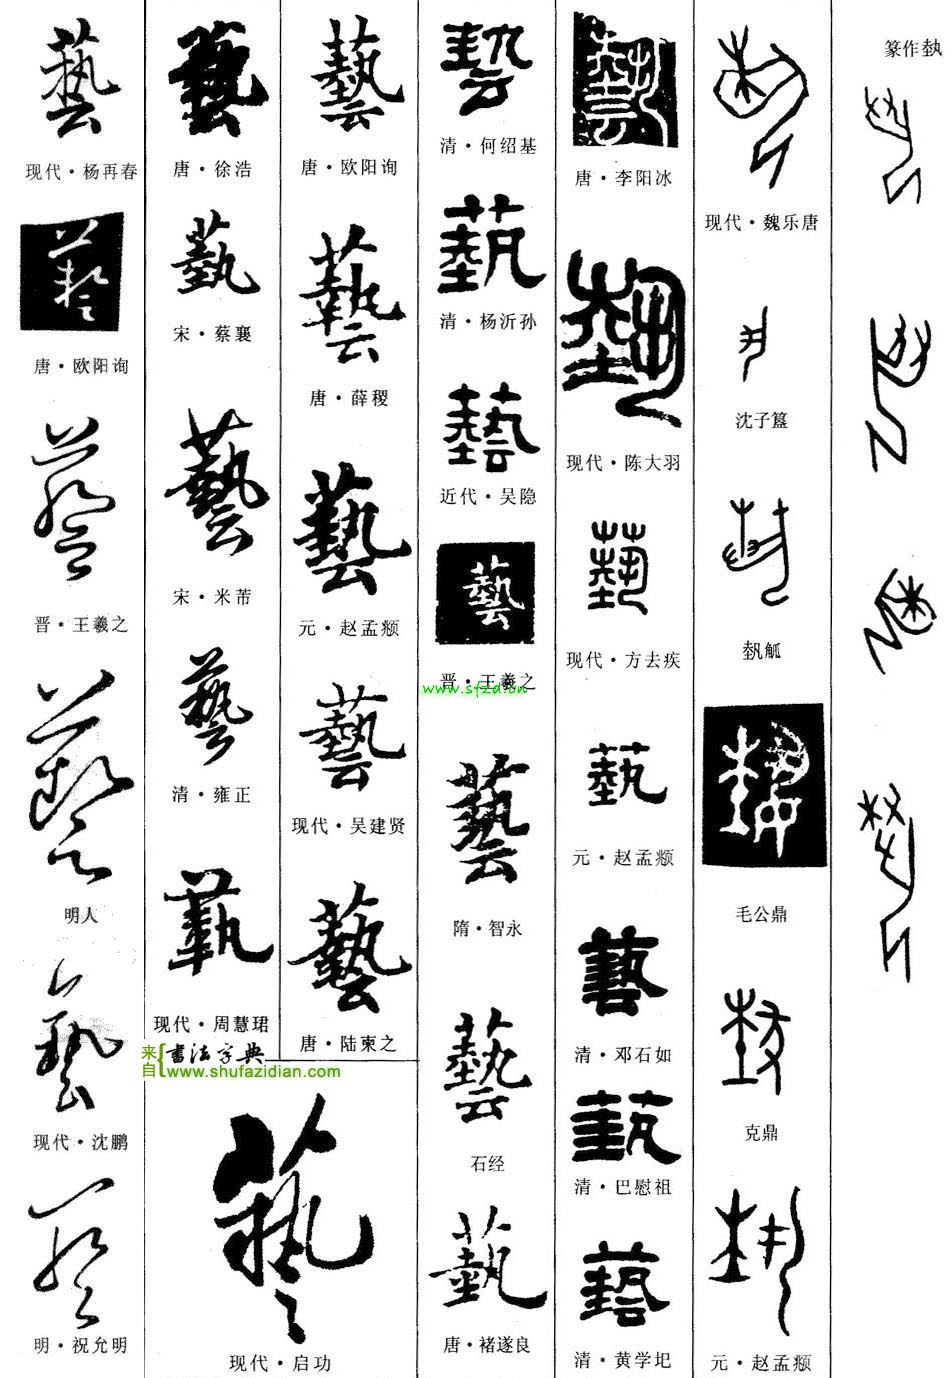 篆作埶
藝
现代·魏乐唐
沈子簋
埶觚
毛公鼎
克鼎
元·赵孟頫
藝
唐·李阳冰
现代·陈大羽
藝
现代·方去疾
藝
元·赵孟頫
藝
清·邓石如
清·巴慰祖
藝
清·黄学圯
清·何绍基
清·杨沂孙
藝
近代·吴隐
藝
晋·王羲之
www.sfzd.cn
藝
隋·智永
藝
石经
唐·褚遂良
藝
唐·欧阳询
藝
唐·薛稷
藝
元·赵孟頫
藝
现代·吴建贤
藝
唐·陆柬之
藝
唐·徐浩
宋·蔡襄
藝
宋·米芾
藝
清·雍正
现代·周慧珺
来自{书法字典
www.shufazidian.com
藝
现代·启功
藝
现代·杨再春
藝
唐·欧阳询
藝
晋·王羲之
藝
明人
藝
现代·沈鹏
藝
明·祝允明